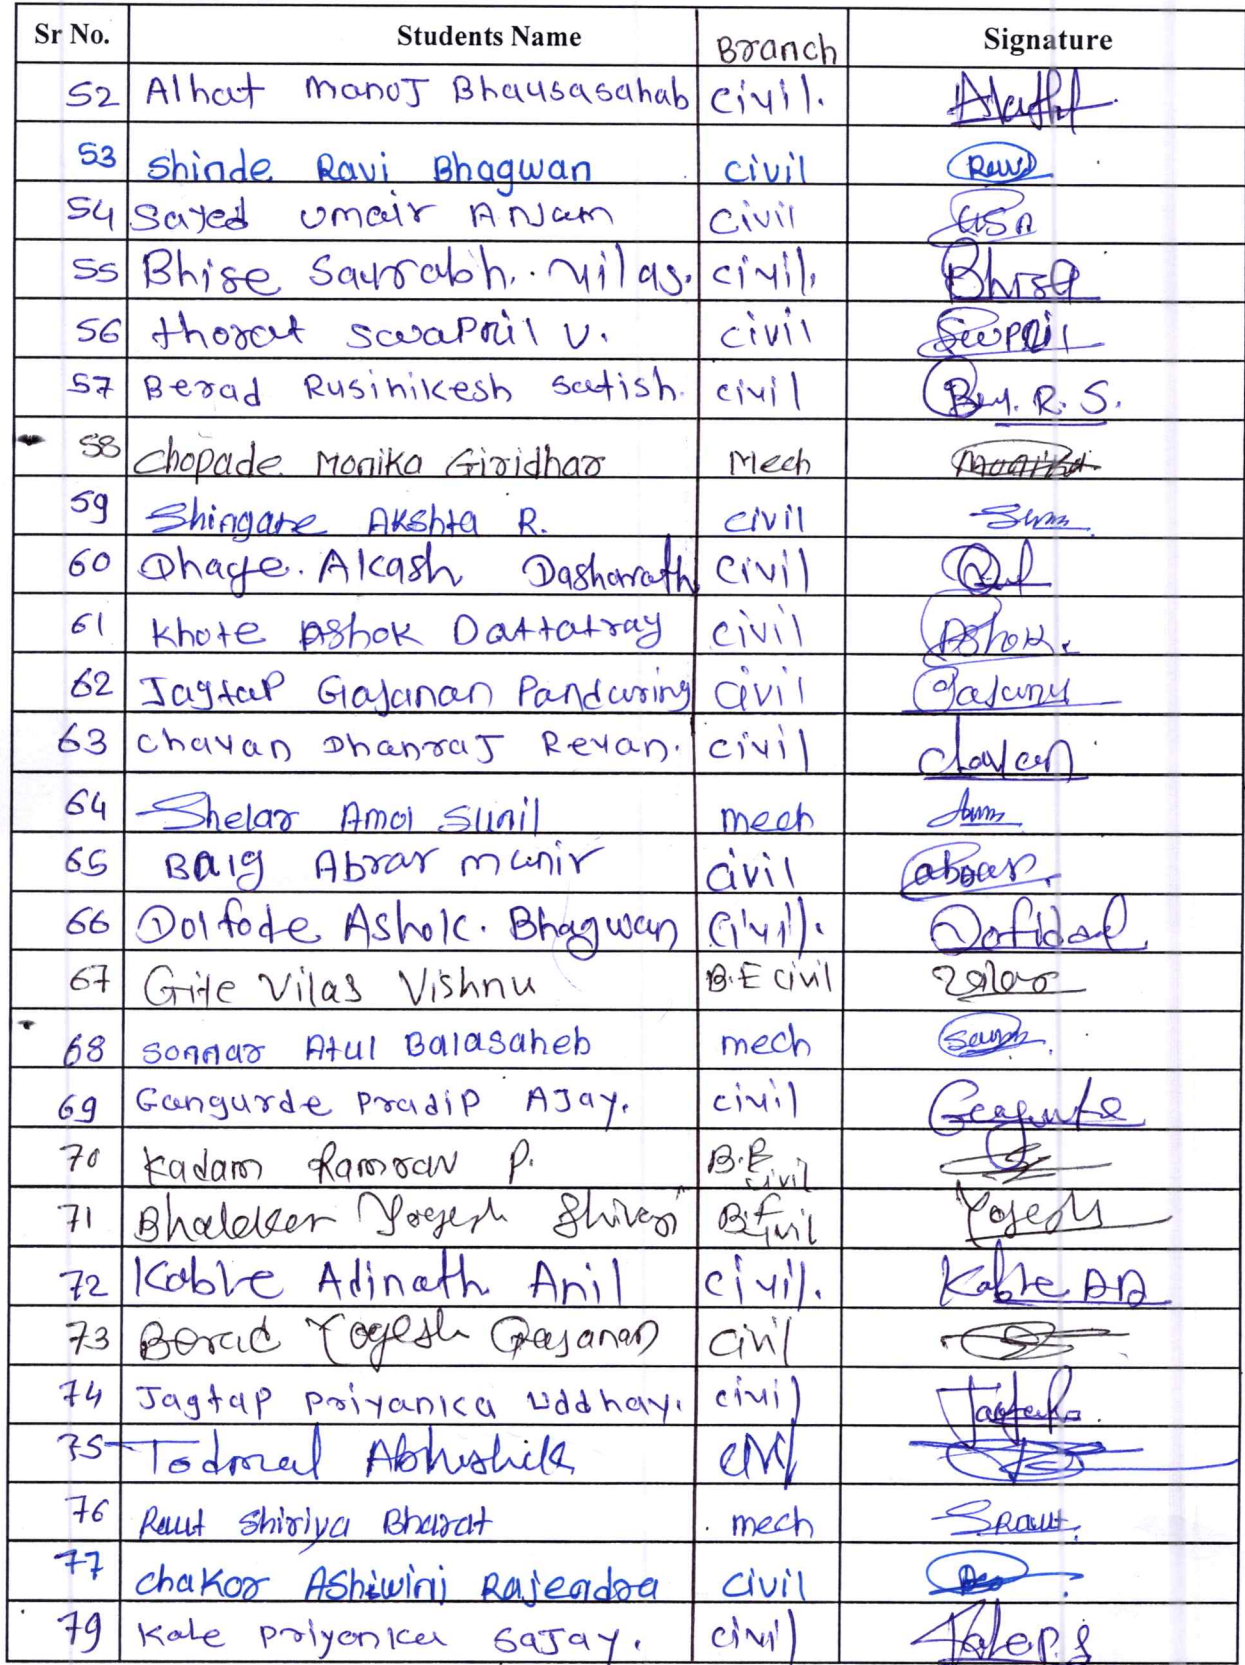 Sr No. Students Name Branch Signature
52 Alhat Manoj Bhausasahab civil.
53 Shinde Ravi Bhagwan civil Ravi
54 Sayed Umair Anjam civil USA
55 Bhise Saurabh. Vilas. civil. Bhise
56 thorat Swapnil V. civil Swpnil
57 Berad Rusihikesh Satish. civil R. S.
58 Chopade Monika Giridhar Mech Monika
59 Shingare Akshta R. civil
60 Dhage. Akash Dasharath civil
61 Khote Ashok Dattatray civil Ashok.
62 Jagtap Gajanan Panduring civil
63 Chavan Dhanraj Revan. civil Chavan
64 Shelar Amol Sunil mech
65 Baig Abrar Munir civil abrar.
66 Dolfode Ashok. Bhagwan civil.
67 Gite Vilas Vishnu B.E civil
68 Sonnar Atul Balasaheb mech
69 Gangurde Pradip Ajay. civil
70 Kadam Ramrav P. B.E civil
71 Bhalekar Yogesh B.E civil Yogesh
72 Kable Adinath Anil civil. Kable AA
73 Berad Yogesh Gajanan civil
74 Jagtap Priyanka Uddhav. civil
75 Todmal Abhishek civil
76 Raut Shiriya Bharat mech SRaut.
77 Chakor Ashiwini Rajendra civil
79 Kale Priyanka Sajay. civil Kale P. S